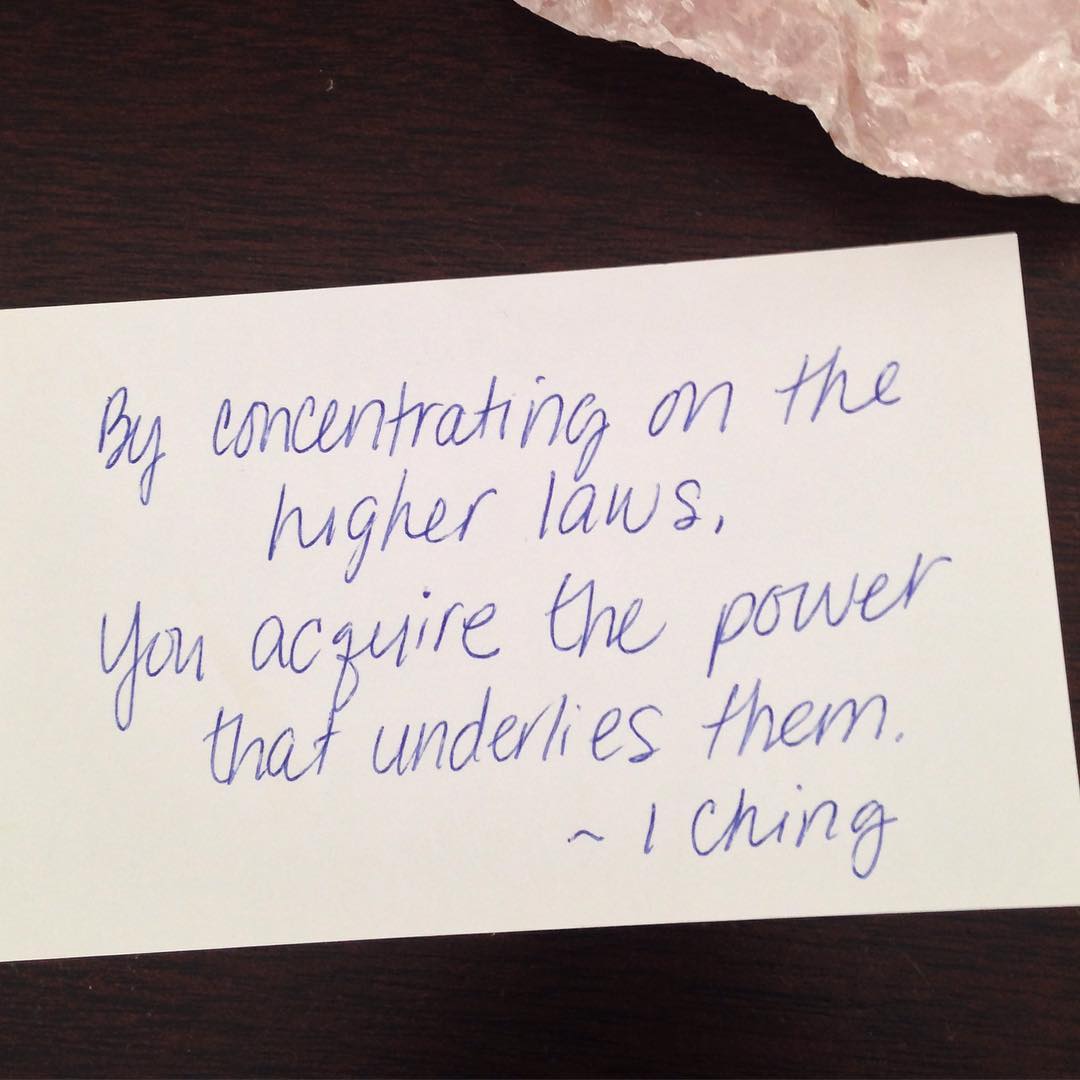 By concentrating on the
higher laws,
you acquire the power
that underlies them.
~ I Ching